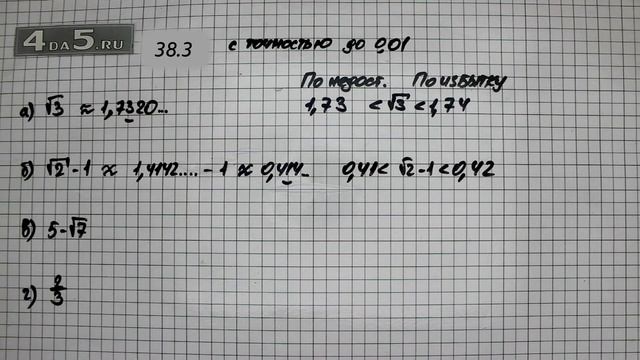 4DA5.RU 38.3 с точностью до 0,01
По недост. По избытку
а) √3 ≈ 1,7320... 1,73 < √3 < 1,74
б) √2 - 1 ≈ 1,4142.... - 1 ≈ 0,414.. 0,41 < √2 - 1 < 0,42
в) 5 - √7
г) 2/3